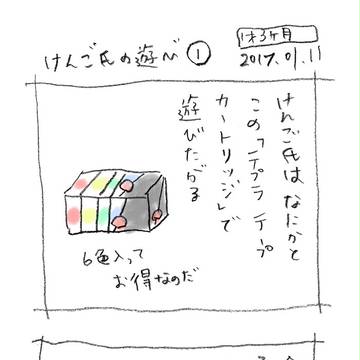 けんご氏の遊び ①
1才3ヶ月
2017.01.11
けんご氏はなにかと
この「テプラ テープ
カートリッジ」で
遊びたがる
6色入って
お得なのだ